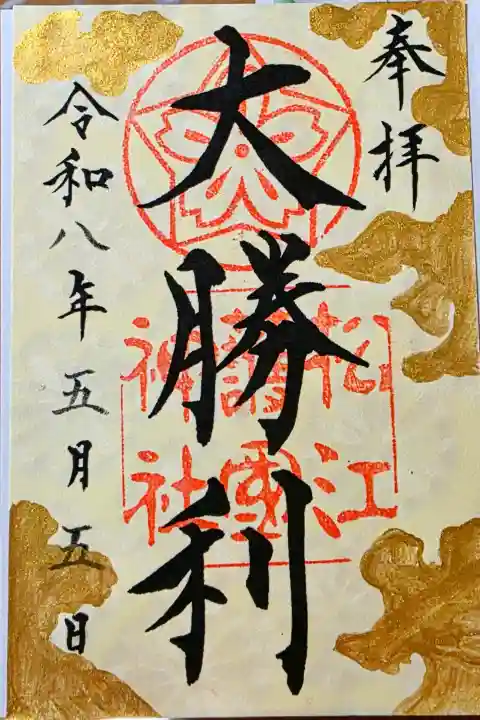 奉拝
大勝利
松江
護國
神社
令和八年五月五日